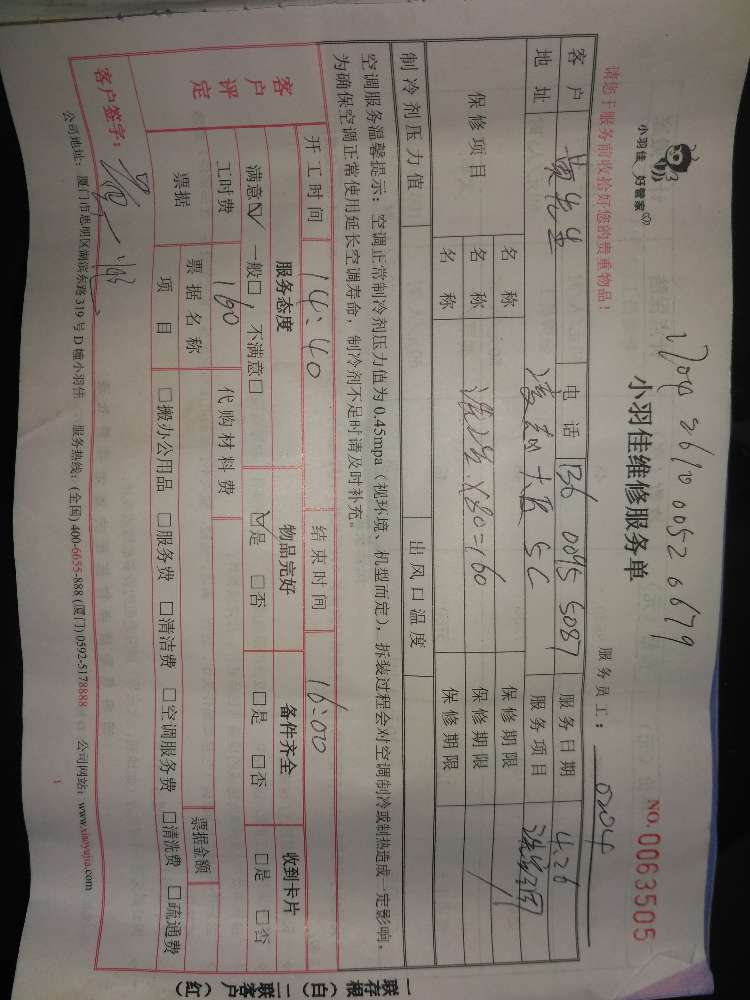 小羽佳 好管家
小羽佳维修服务单
NO. 0063505
请您于服务前收拾好您的贵重物品！
服务员工： 0204
客户 黄先生 电话 136 0095 5087 服务日期 4.26
地址 大厦 5C 服务项目
保修项目 名称 保修期限
名称 X80=160 保修期限
名称 保修期限
制冷剂压力值 出风口温度
空调服务温馨提示：空调正常制冷剂压力值为0.45mpa（视环境、机型而定），拆装过程会对空调制冷或制热造成一定影响，
为确保空调正常使用延长空调寿命，制冷剂不足时请及时补充。
开工时间 14:40 结束时间 16:00
客户评定 服务态度 物品完好 备件齐全 收到卡片
满意☑ 一般□，不满意□ ☑是 □否 □是 □否 □是 □否
工时费 160 代购材料费
票据 票据名称 票据金额
项目 □搬办公用品 □服务费 □清洁费 □空调服务费 □清洗费 □疏通费
客户签字：
公司地址：厦门市思明区湖滨东路319号D幢小羽佳 服务热线：(全国) 400-6655-888 (厦门) 0592-5178888 公司网站：www.xiaoyujia.com
一联存根（白）二联客户（红）